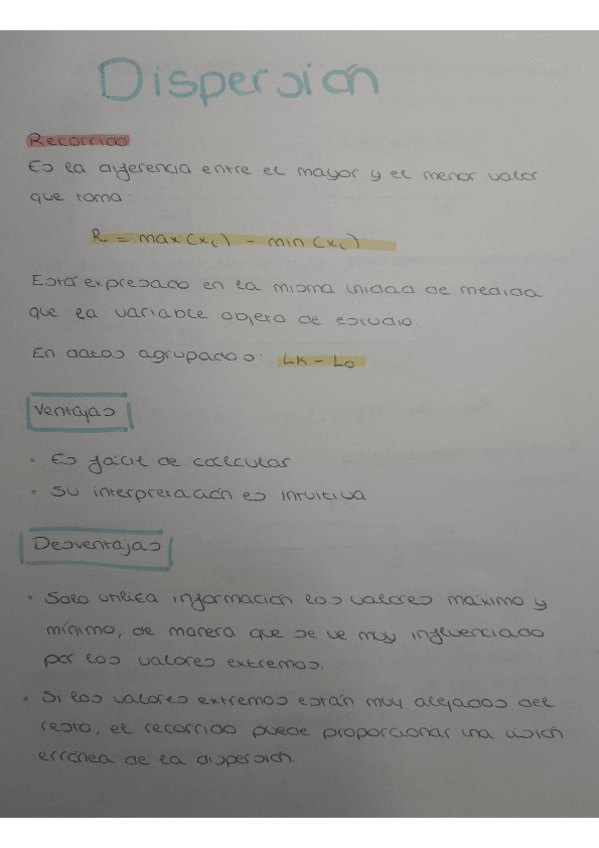 Dispersión
Recorrido
Es la diferencia entre el mayor y el menor valor
que toma:
R = max(xi) - min(xi)
Está expresado en la misma unidad de medida
que la variable objeto de estudio.
En datos agrupados: Lk - L0
Ventajas
• Es fácil de calcular
• Su interpretación es intuitiva
Desventajas
• Solo utiliza información los valores máximo y
mínimo, de manera que se ve muy influenciado
por los valores extremos.
• Si los valores extremos están muy alejados del
resto, el recorrido puede proporcionar una visión
errónea de la dispersión.